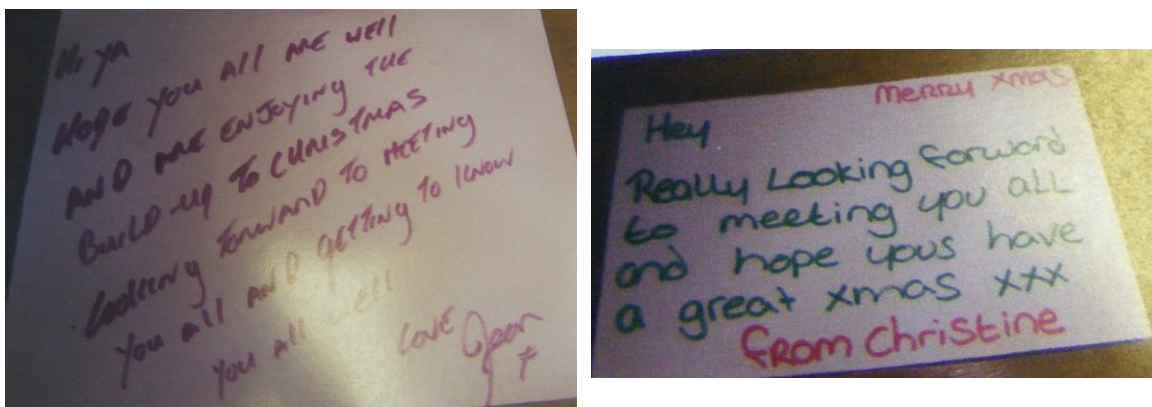 Hi ya
Hope you all are well
AND ARE ENJOYING THE
BUILD-UP TO CHRISTMAS
Looking forward to MEETING
you all AND getting to know
you all well
love Jean
x
Merry xmas
Hey
Really Looking forward
to meeting you all
and hope yous have
a great xmas xxx
from Christine